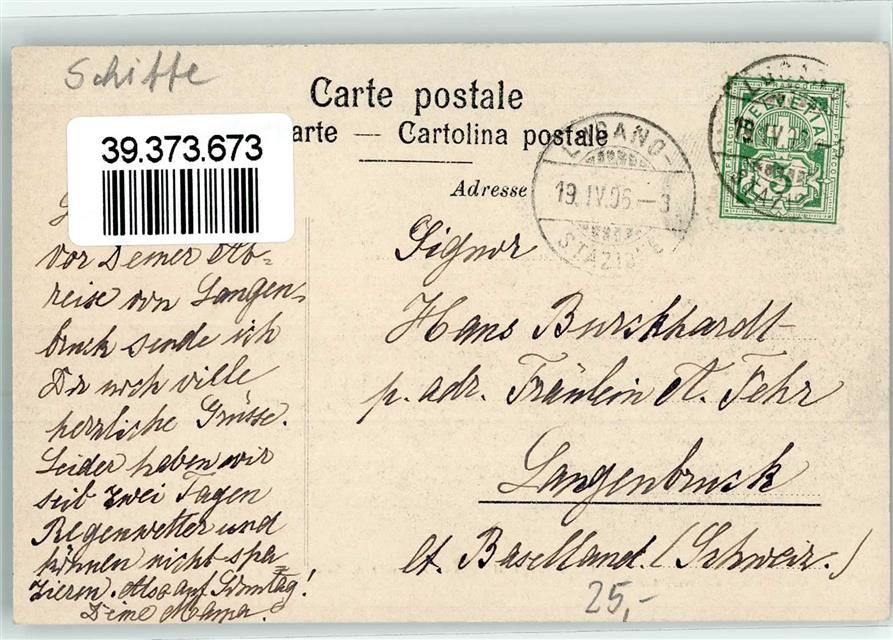 Schiffe
Carte postale
arte — Cartolina postale
39.373.673
Adresse
LUGANO
19.IV.06.-3
STAZIONE
HELVETIA
5
vor Deiner Ab-
reise von Langen-
bruck sende ich
Dir noch viele
herzliche Grüsse.
Leider haben wir
seit zwei Tagen
Regenwetter und
können nicht spa-
zieren. Also auf Sonntag!
Deine Mama.
Signor
Hans Burckhardt
p. adr. Fräulein A. Fehr
Langenbruck
Ct. Baselland. (Schweiz.)
25,-